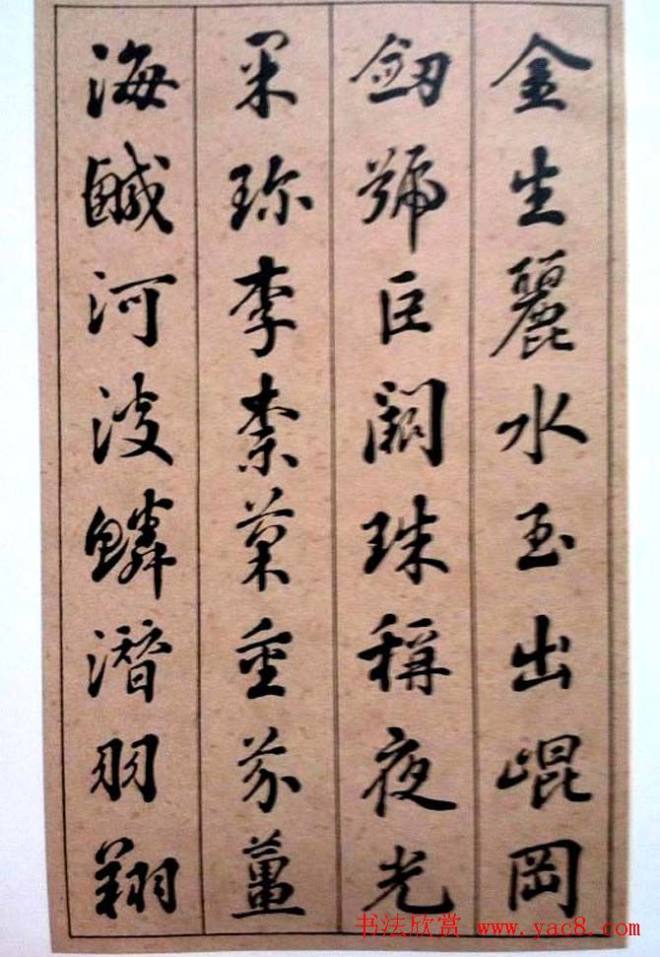 金生麗水玉出崐岡
劒號巨闕珠稱夜光
果珎李柰菜重芥薑
海鹹河淡鱗潛羽翔
书法欣赏 www.yac8.com